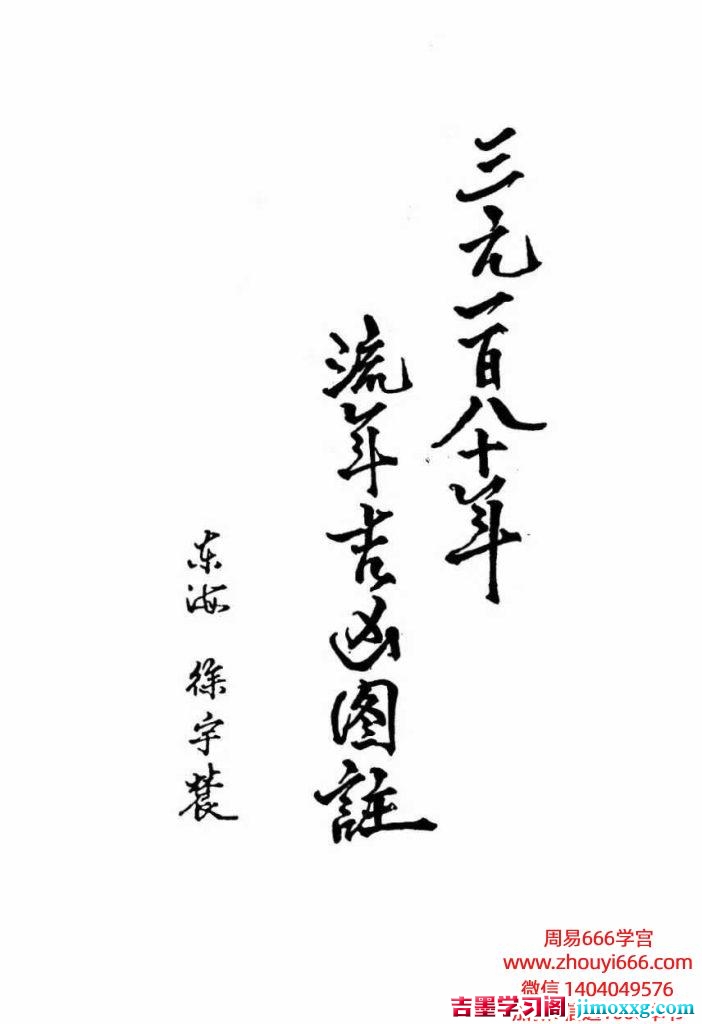 三元一百八十年
流年吉凶图註
东海 徐宇辳
周易666学宫
www.zhouyi666.com
微信 1404049576
吉墨学习阁 jimoxxg.com